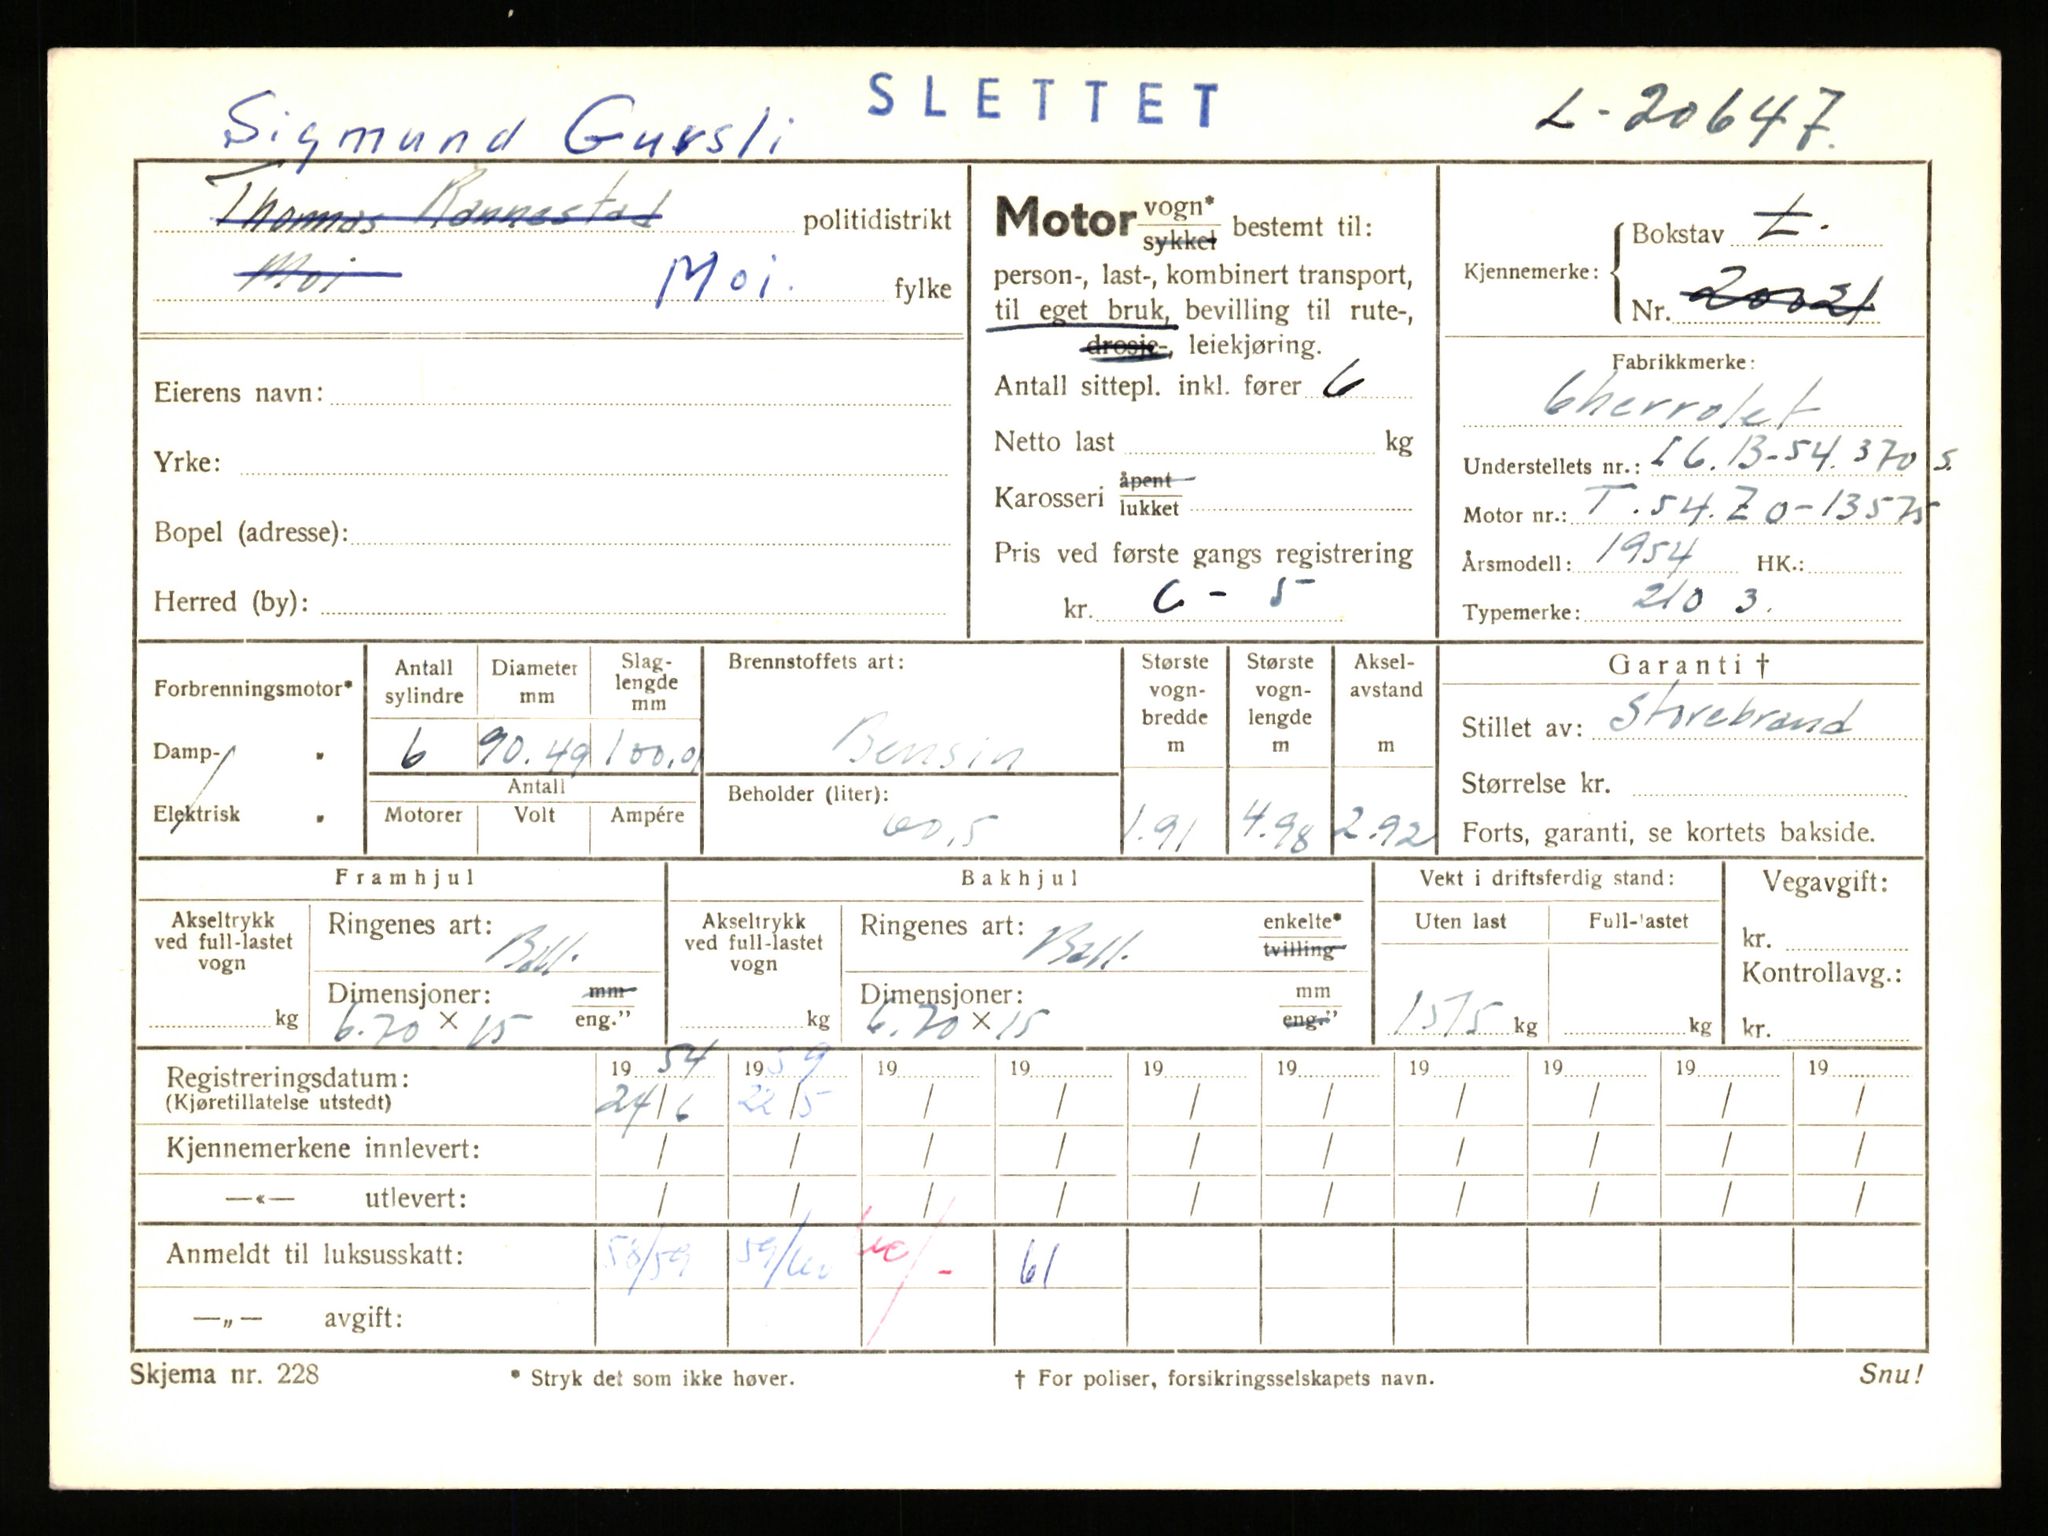 SLETTET
L-20647.
Sigmund Gursli
Thomas Rannestad politidistrikt
Moi Moi. fylke
Eierens navn:
Yrke:
Bopel (adresse):
Herred (by):
Motor vogn* sykkel bestemt til:
person-, last-, kombinert transport,
til eget bruk, bevilling til rute-,
drosje-, leiekjøring.
Antall sittepl. inkl. fører 6
Netto last kg
Karosseri åpent lukket
Pris ved første gangs registrering
kr. 6 - 5
Kjennemerke: Bokstav L.
Nr. 20021
Fabrikkmerke:
Chevrolet
Understellets nr.: L6.B-54.370 S.
Motor nr.: T.54.Z0-13575
Årsmodell: 1954 HK.:
Typemerke: 210 3.
Forbrenningsmotor*
Damp- "
Elektrisk "
Antall sylindre
6
Diameter mm
90.49
Slag-lengde mm
100.01
Antall
Motorer Volt Ampére
Brennstoffets art:
Bensin
Beholder (liter):
60,5
Største vogn-bredde m
1.91
Største vogn-lengde m
4.98
Aksel-avstand m
2.92
Garanti †
Stillet av: Storebrand
Størrelse kr.
Forts, garanti, se kortets bakside.
Framhjul
Akseltrykk ved full-lastet vogn
kg
Ringenes art: Ball.
Dimensjoner: mm eng."
6.70 × 15
Bakhjul
Akseltrykk ved full-lastet vogn
kg
Ringenes art: Ball. enkelte* tvilling
Dimensjoner: mm eng."
6.70 × 15
Vekt i driftsferdig stand:
Uten last Full-lastet
1575 kg kg
Vegavgift:
kr.
Kontrollavg.:
kr.
Registreringsdatum: 19 54 19 59 19 19 19 19 19 19 19 19
(Kjøretillatelse utstedt) 24/6 22/5 / / / / / / / /
Kjennemerkene innlevert: / / / / / / / / / /
—«— utlevert: / / / / / / / / / /
Anmeldt til luksusskatt: 58/59 59/60 60/- 61
—„— avgift:
Skjema nr. 228 * Stryk det som ikke høver. † For poliser, forsikringsselskapets navn. Snu!